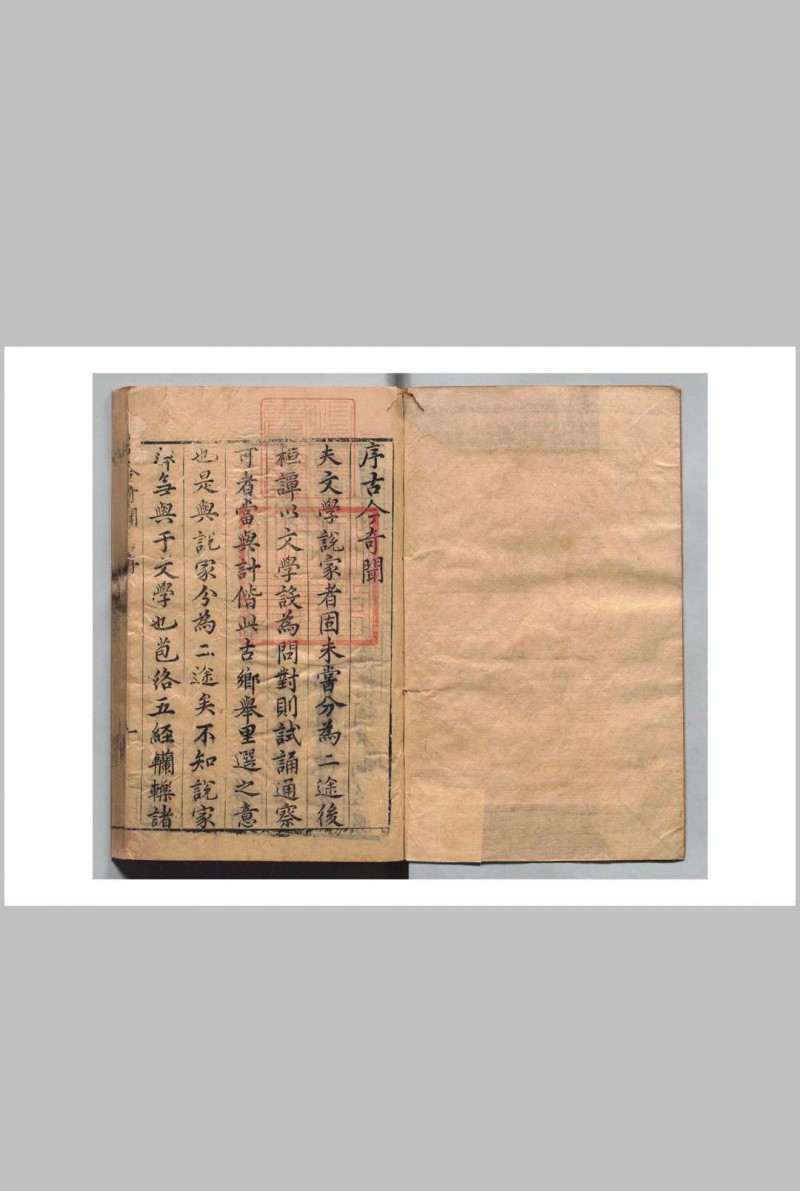 序古今奇聞
夫文學說家者固未嘗分為二途後
桓譚以文學設為問對則試誦通察
可者當與計偕此古鄉舉里選之意
也是與說家分為二途矣不知說家
無與于文學也苞絡五經轥轢諸
今奇聞 序 一